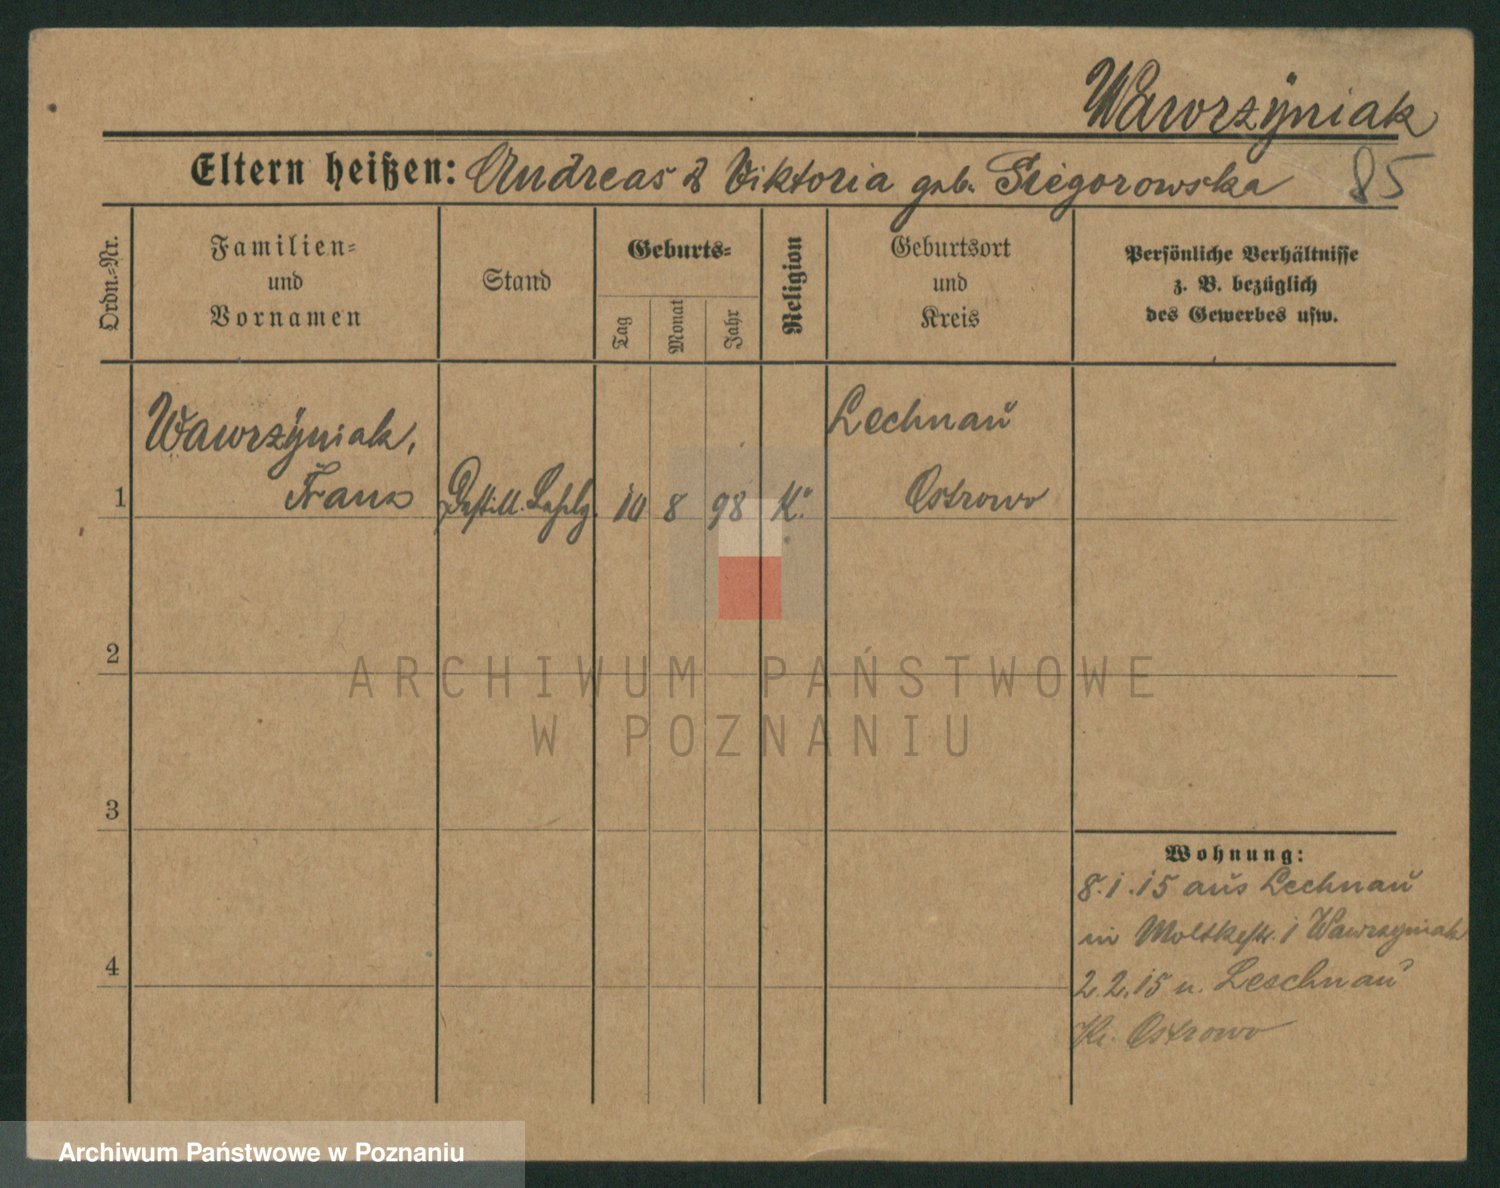 Wawrzyniak
Eltern heißen: Andreas & Viktoria geb. Siegorowska
85
Ordn.-Nr.
Familien-
und
Vornamen
Stand
Geburts-
Tag
Monat
Jahr
Religion
Geburtsort
und
Kreis
Persönliche Verhältnisse
z. B. bezüglich
des Gewerbes usw.
Wawrzyniak,
Franz
1
Destill. Lehrlg.
10 8 98 K.
Lechnau
Ostrowo
2
3
4
Wohnung:
8.1.15 aus Lechnau
in Moltkestr. 1 Wawrzyniak
2.2.15 n. Leschnau
Kr. Ostrowo
ARCHIWUM PAŃSTWOWE
W POZNANIU
Archiwum Państwowe w Poznaniu